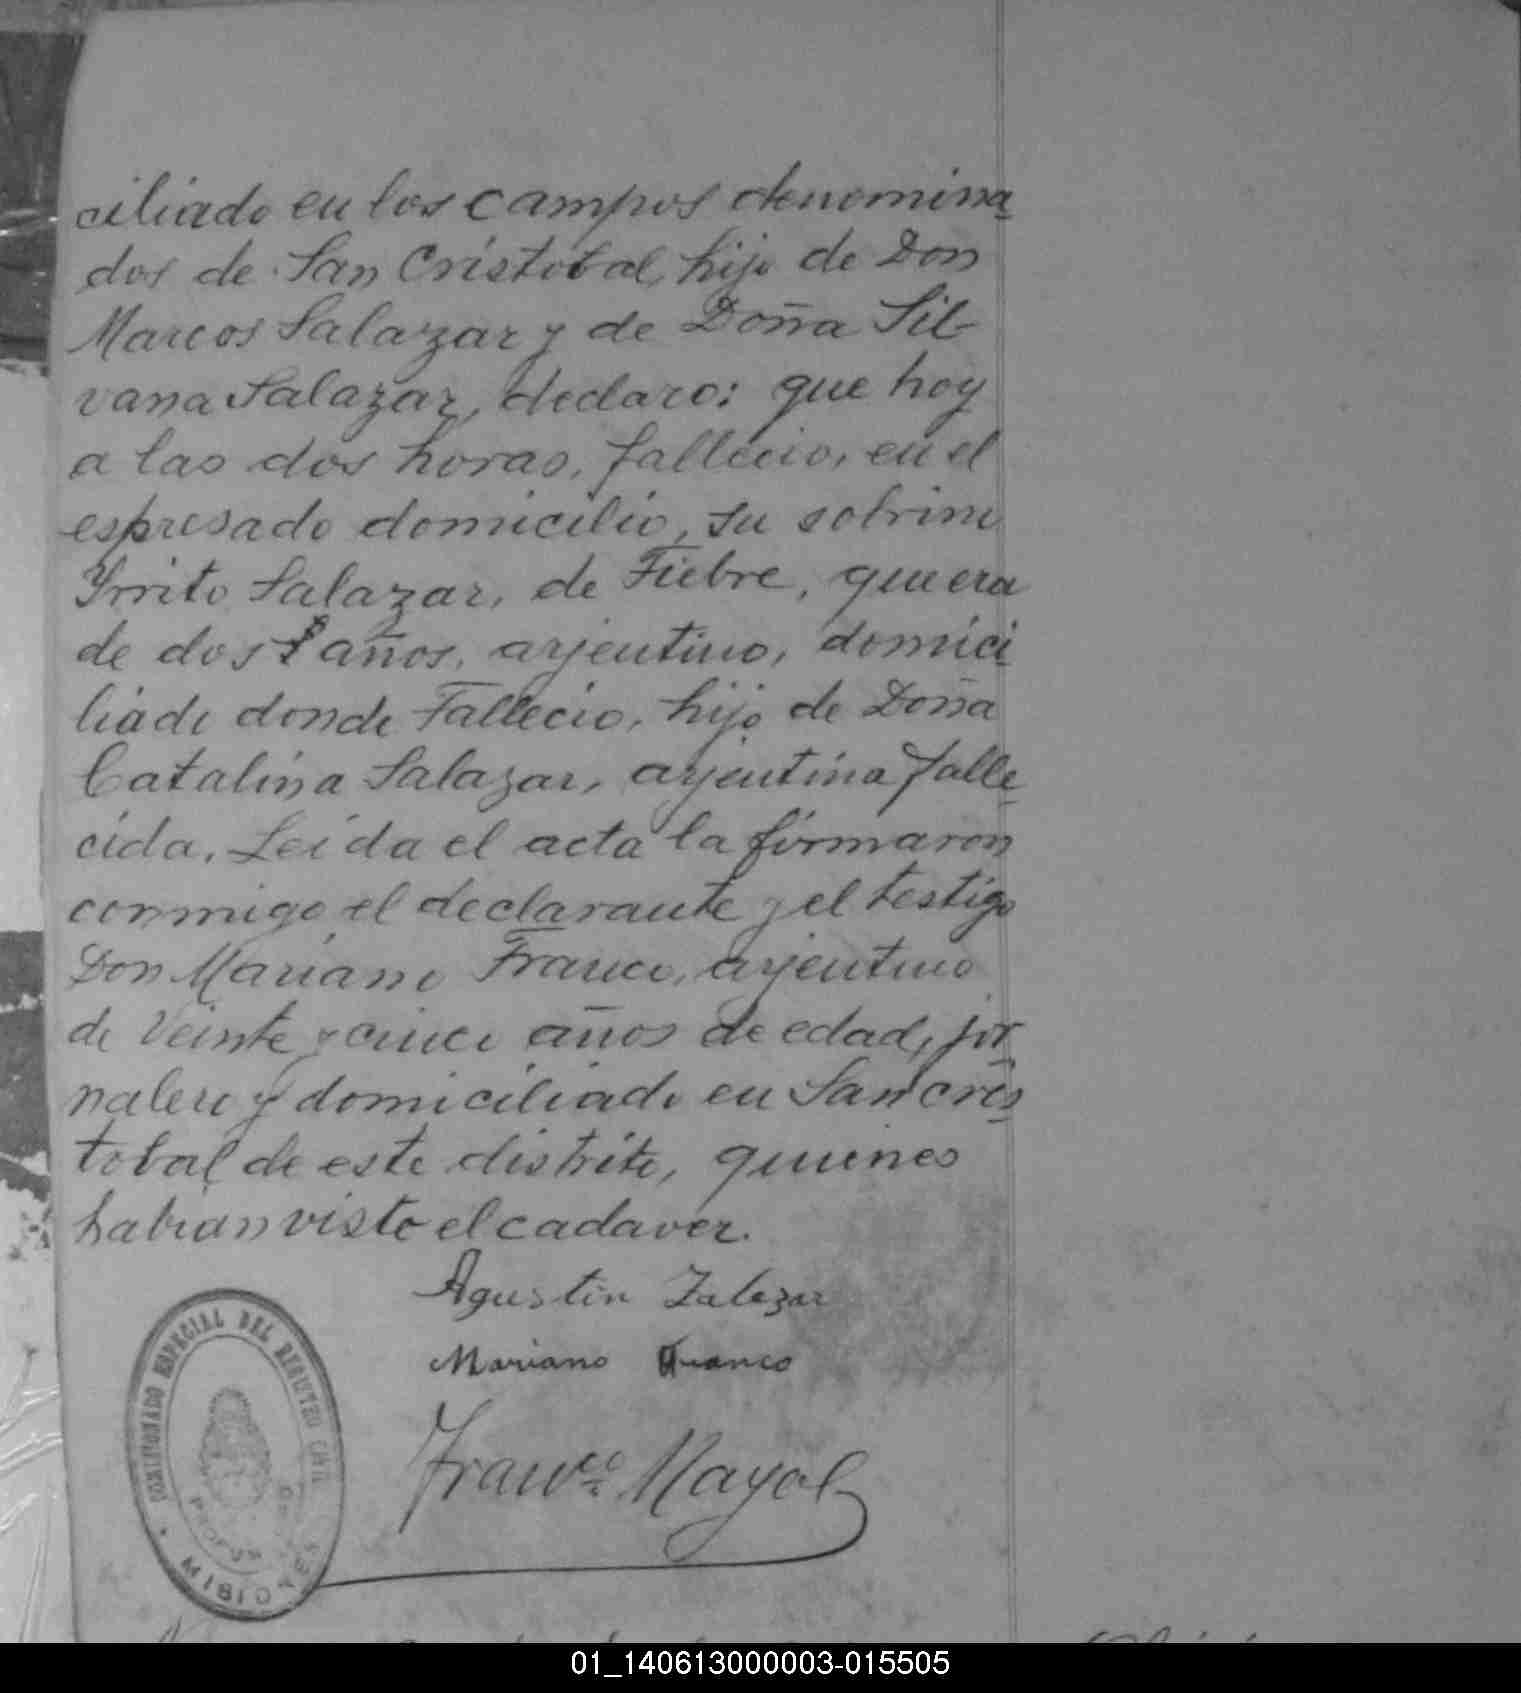 ciliado en los campos denomina
dos de San Cristobal, hijo de Don
Marcos Salazar y de Doña Sil-
vana Salazar, declaro: que hoy
a las dos horas, fallecio, en el
espresado domicilio, su sobrino
Yrrito Salazar, de Fiebre, que era
de dos años, arjentino, domici
liado donde Fallecio, hijo de Doña
Catalina Salazar, arjentina falle
cida. Leida el acta la firmaron
conmigo el declarante y el testigo
Don Mariano Franco, arjentino
de veinte y cinco años de edad, jor
nalero y domiciliado en San Cris
tobal de este distrito, quienes
habian visto el cadaver.
Agustin Zalazar
Mariano Franco
Franco. Mayol
COMISIONADO ESPECIAL DEL REGISTRO CIVIL
MISIONES
01_140613000003-015505